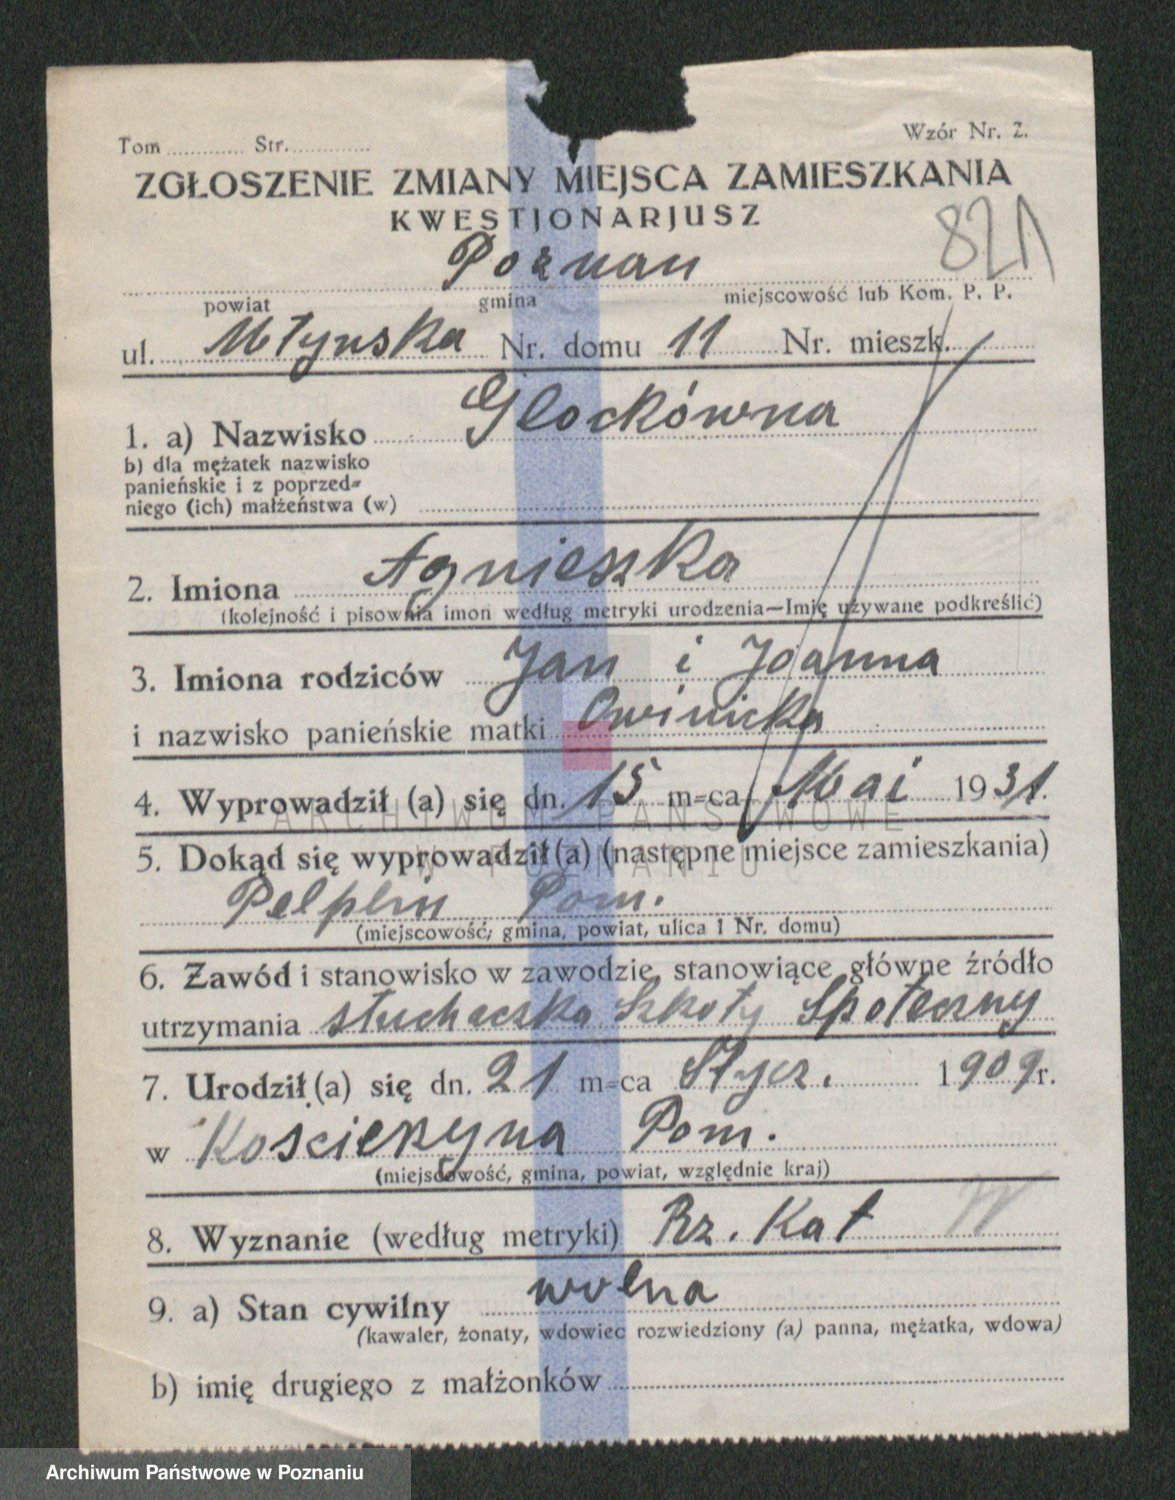 Tom ............ Str. ............
Wzór Nr. 2.
ZGŁOSZENIE ZMIANY MIEJSCA ZAMIESZKANIA
KWESTJONARJUSZ
821
Poznan
powiat gmina miejscowość lub Kom. P. P.
ul. Młynska Nr. domu 11 Nr. mieszk.
1. a) Nazwisko Glockówna
b) dla mężatek nazwisko
panieńskie i z poprzed=
niego (ich) małżeństwa (w)
2. Imiona Agnieszka
(kolejność i pisownia imon według metryki urodzenia—Imię używane podkreślić)
3. Imiona rodziców Jan i Joanna
i nazwisko panieńskie matki Owinicka
4. Wyprowadził (a) się dn. 15 m=ca Mai 1931.
ARCHIWUM PAŃSTWOWE
5. Dokąd się wyprowadził (a) (następne miejsce zamieszkania)
W POZNANIU
Pelplin Pom.
(miejscowość, gmina, powiat, ulica I Nr. domu)
6. Zawód i stanowisko w zawodzie, stanowiące główne źródło
utrzymania słuchaczka Szkoły Społeczny
7. Urodził (a) się dn. 21 m=ca Stycz. 1909 r.
w Koscierzyna Pom.
(miejscowość, gmina, powiat, względnie kraj)
8. Wyznanie (według metryki) Rz. Kat W
9. a) Stan cywilny wolna
(kawaler, żonaty, wdowiec rozwiedziony (a) panna, mężatka, wdowa)
b) imię drugiego z małżonków
Archiwum Państwowe w Poznaniu